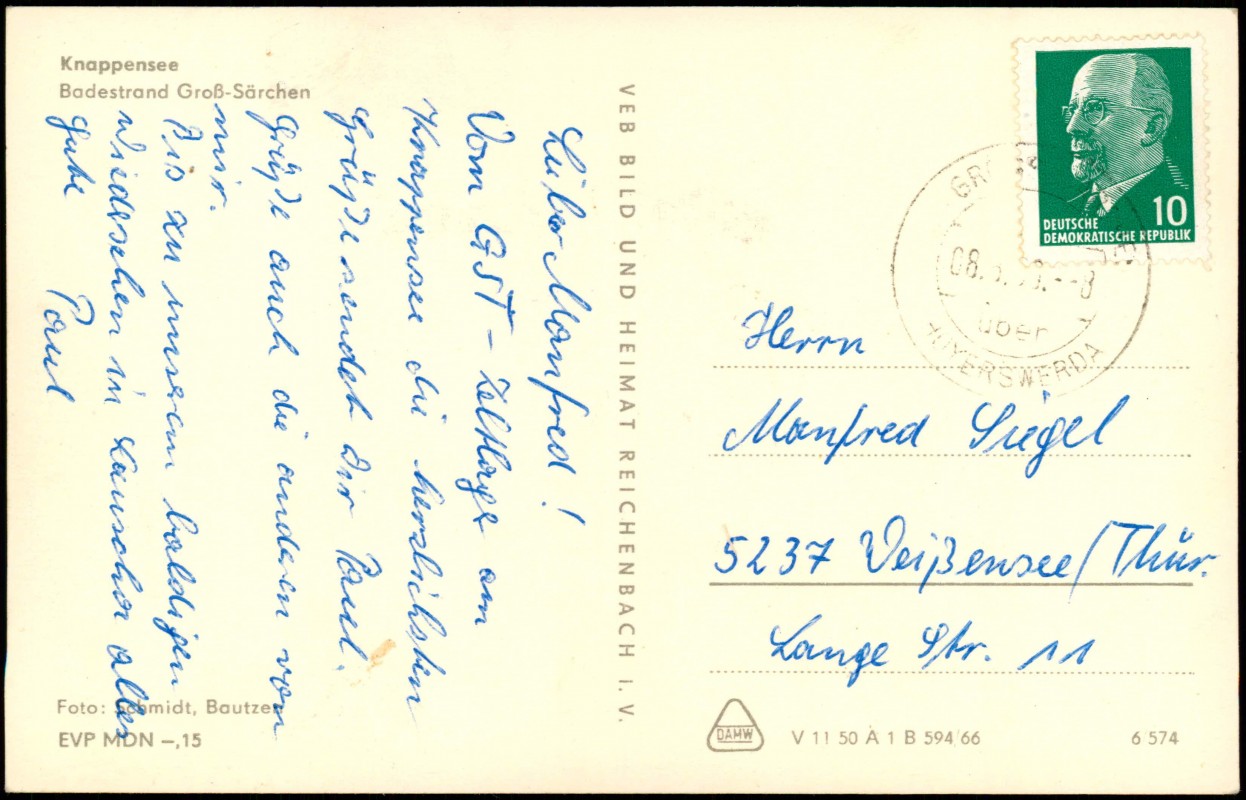 Knappensee
Badestrand Groß-Särchen
Lieber Manfred!
Vom GST-Zeltlage am
Knappensee die herzlichsten
Grüße sendet Dir Paul.
Grüße auch die anderen von
mir.
Bis zu unserem baldigen
Wiedersehen in Lauscha alles
Gute
Paul
Foto: Schmidt, Bautzen
EVP MDN –,15
VEB BILD UND HEIMAT REICHENBACH I. V.
DEUTSCHE
DEMOKRATISCHE REPUBLIK
10
08.
-8
über
HOYERSWERDA
Herrn
Manfred Siegel
5237 Weißensee/Thür.
Lange Str. 11
DAMW
V 11 50 A 1 B 594/66
6 574